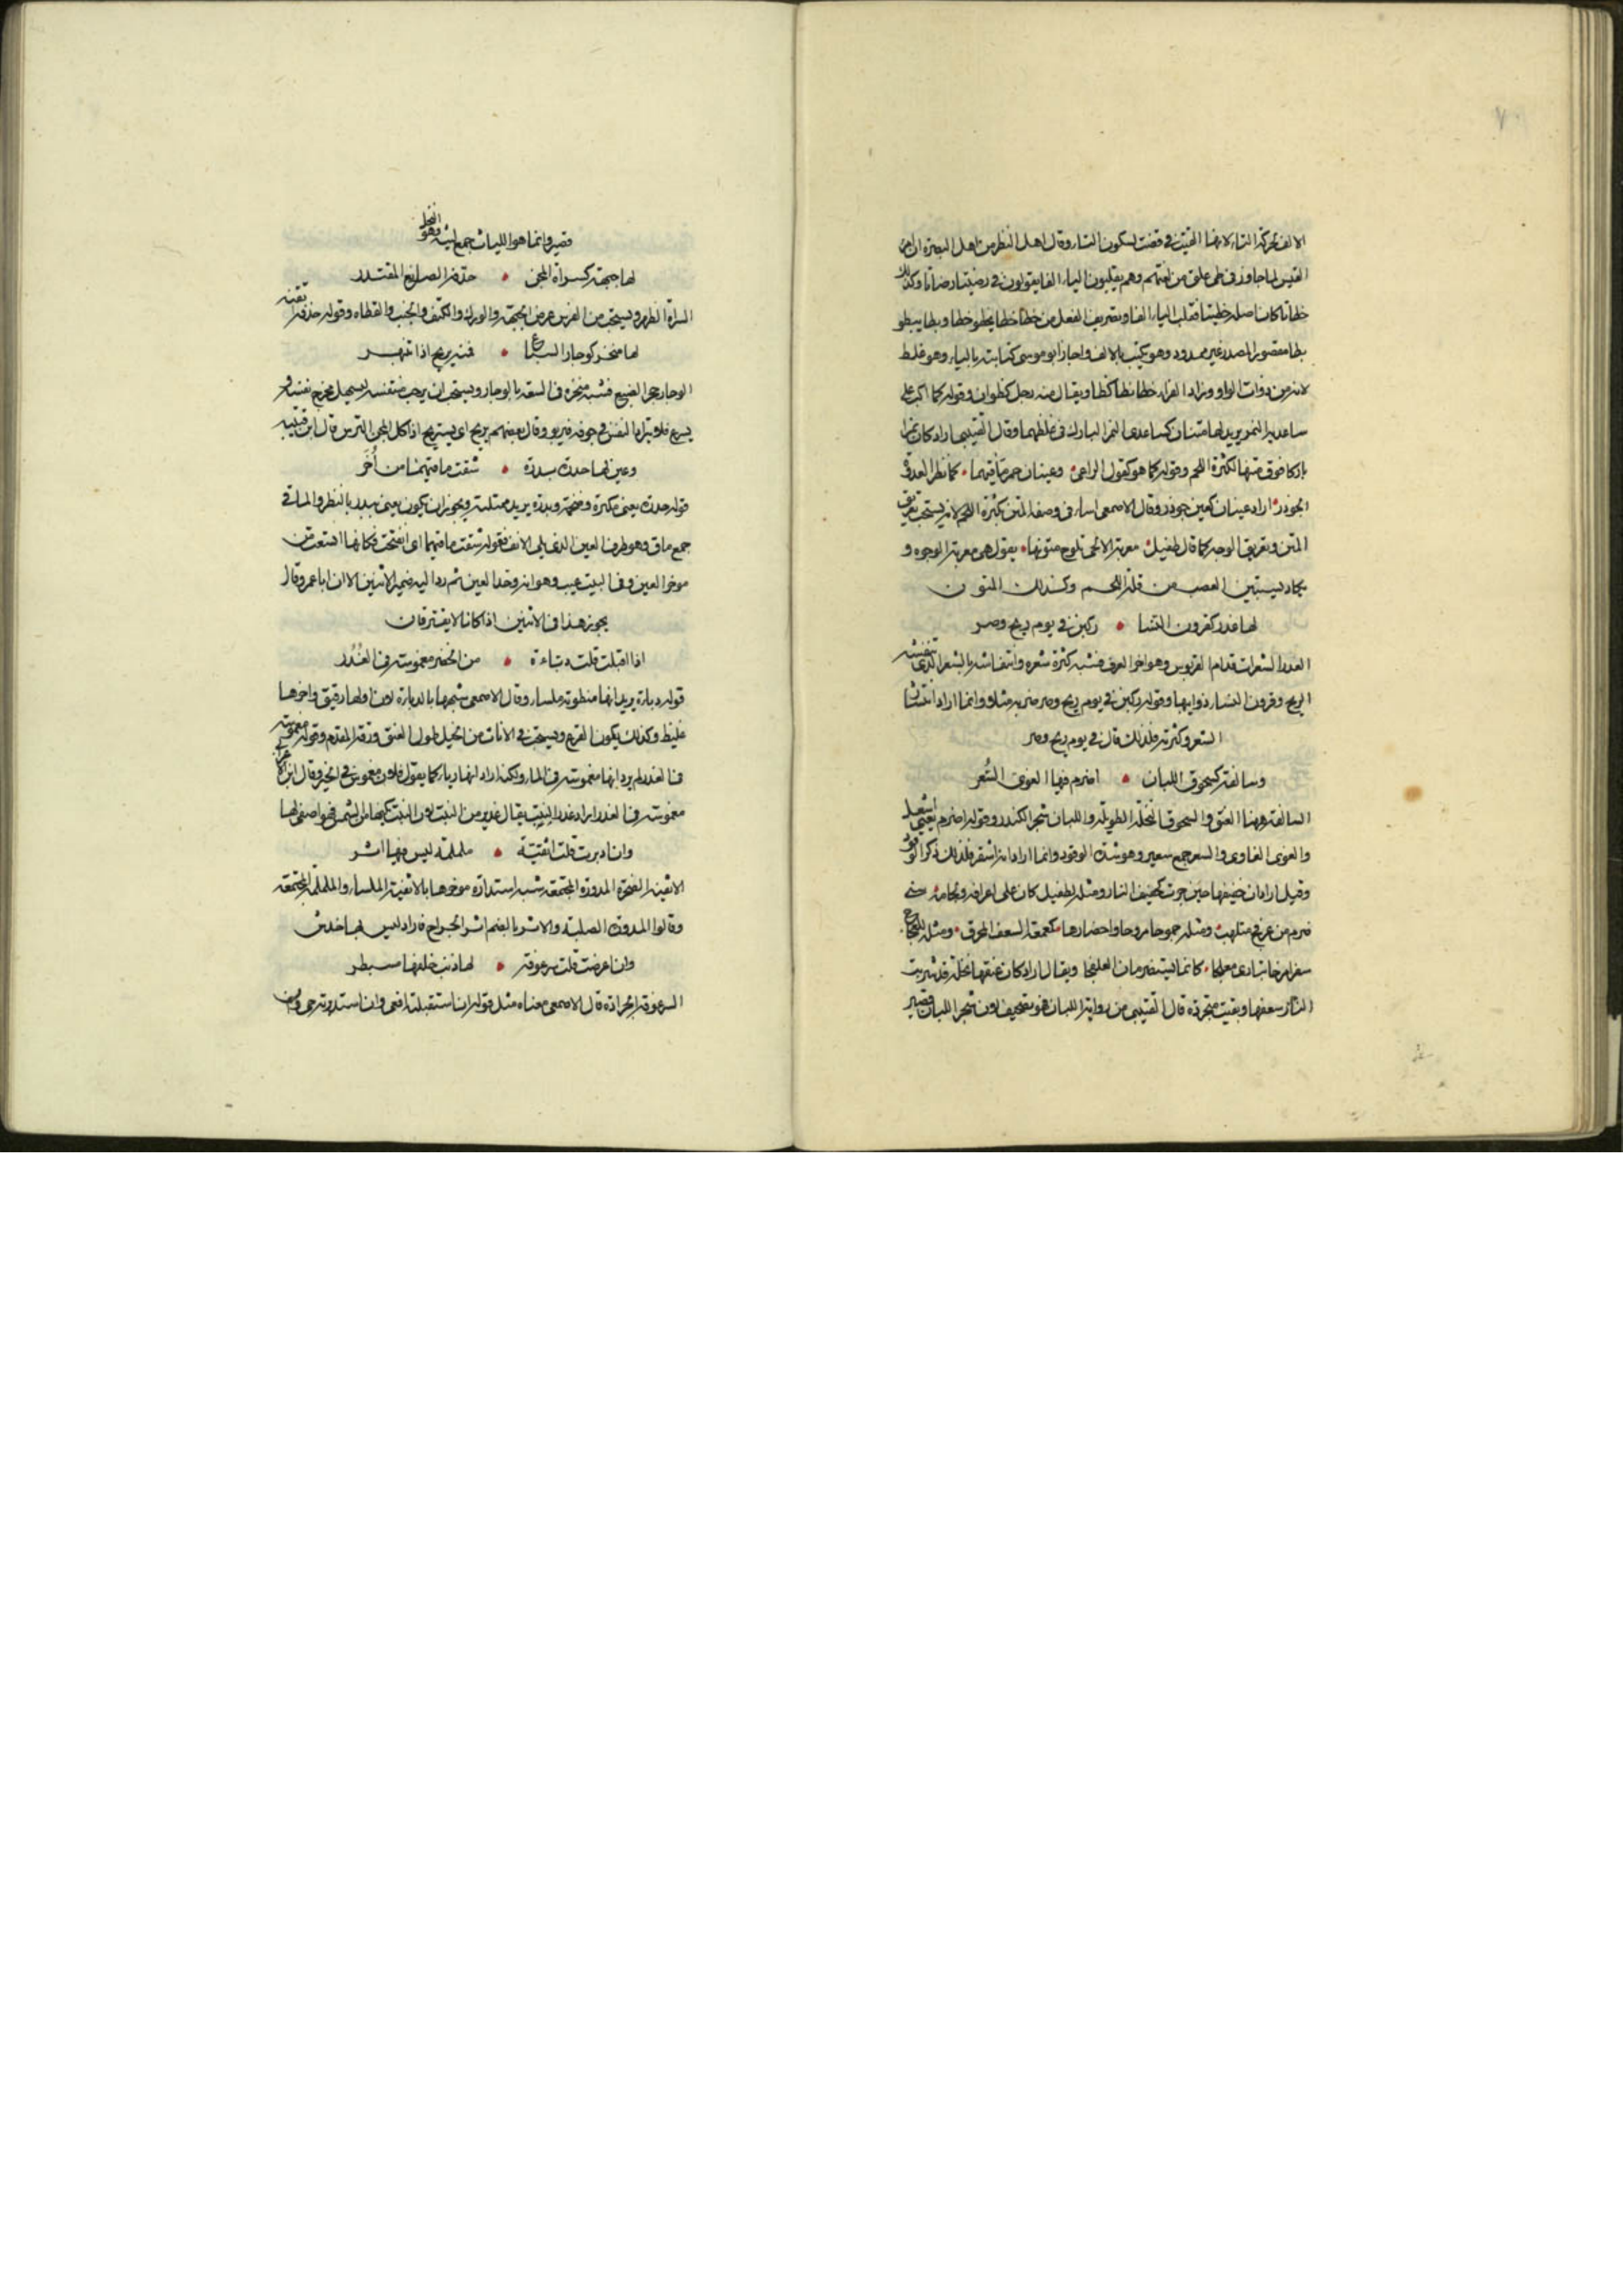 الالف لحركة التاء لانها الفيت في قضت لسكون التاء وقال اهل النظر من اهل البصرة ان امرء
القيس لما جاوز في طي علق من لغتهم وهم يقلبون الياء الفا يقولون في رضيتا رضاتا وكذلك
خظاتا كان اصله خظيتا فقلب الياء الفا وتصريف الفعل من خظا خظا يخظو خظا وبظا يبظو
بظا مقصور المصدر غير ممدود وهو يكتب بالالف واجاز ابو موسى كتابته بالياء وهو غلط
لانه من ذوات الواو وزاد الفراء خظا بظا كظا ويقال منه رجل خظوان وقوله كما اكب على
ساعديه النمر يريد لها متنان كساعدى النمر البارك في غلظهما وقال القتيبي اراد كان نمرا
باركا فوق متنها لكثرة اللحم وقوله كما هو كقول الراعى وعينان حمر مآقيهما كما نظر العدوة
الجوذر اراد عينان كعين جوذر وقال الاصمعى اساء في وصفه المتن بكثرة اللحم لانه يستحب تعريق
المتن وتعريق الوجه كما قال طفيل معرقة الالحى تلوح متونها يقول هى معرقة الوجوه و
يكاد يستبين العصب من قلة اللحم وكذلك المتون
لها غدر كقرون النسا ركبن في يوم ريح وصر
الغدر الشعرات قدام القربوس وهو اخر العرف فشبه كثرة شعره وانتفاشه بالشعر الذى تنفشه
الريح وقرون النساء ذوايبها وقوله ركبن في يوم ريح وصر ضربه مثلا وانما اراد انتشار
الشعر وكثرته فلذلك قال في يوم ريح وصر
وسالفة كسحوق اللبان اضرم فيها الغوى السُعر
السالفة ههنا العنق والسحوق النخلة الطويلة واللبان شجر الكندر وقوله اضرم يعنى اشعل
والغوى الغاوى والسعر جمع سعير وهو شدة الوقود وانما اراد انها شقر فلذلك ذكر الوقود
وقيل اراد ان حفيفها حين جرت كحفيف النار ومثله لطفيل كان على اعرافه ولجامه سنى
ضرم من عرفج متلهب ومثله جموحا مروحا واحضارها كمعمعة السعف المحرق ومثله للعجاج
سفراء خا تبارى معلجا كانما يستضرمان العرفجا ويقال اراد كان عنقها نخلة قد شربت
النار سعفها وبقيت متجردة قال القتيبي من رواية اللبان فهو تصحيف لان شجر اللبان قصير
قصير وانما هو الليان جمع لينة وهو النخل
لها جبهة كسراة المجن حذفه الصانع المقتدر
السراة الظهر ويستحب من الفرس عرض الجبهة والورك والكتف والجنب والقطاة وقوله حذفه اتقنه
لها منخر كوجار السباع فمنه يريح اذا تنبهر
الوجار جحر الضبع فشبه منخره في السعة بالوجار ويستحب ان يرحب متنفسه ليسهل مخرج نفسه و
يسرع فلا يتراد النفس في جوفه فيربو وقال بعضهم يريح اى يستريح اذا كل المجن الترس قال ابن قتيبة
وعين لها حدرة بدرة شقت مآقيهما من أُخَر
قوله حدرة يعنى مكتنزة وضخمة وبدرة يريد ممتلئة ويجوز ان يكون يعنى تبدر بالنظر والمآقى
جمع ماق وهو طرف العين الذى يلى الانف فقوله شقت مآقيهما اى انفتحت فكانها اتسعت من
موخر العين وفي البيت عيب وهو انه وحد العين ثم رد اليه ضمير الاثنين الا ان ابا عمرو قال
يجوز هذا في الاثنين اذا كانا لا يفترقان
اذا اقبلت قلت دباءة من الخضر مغموسة في الغُدُر
قوله دباءة يريد انها منطوية ملساء وقال الاصمعى شبهها بالدباءة لان اولها رقيق واخرها
غليظ وكذلك يكون القرع ويستحب في الاناث من الخيل طول العنق ودقة المقدم وقوله مغموسة
في الغدر لم يرد انها مغموسة في الماء ولكنه اراد انها رياء كما يقول فلان مغموس في الخير وقال ابن الاعرابي
مغموسة في الغدر اراد غدر النبت يقال غدير من النبت لان النبت يكنها من الشمس فهو اصفى لها
وان ادبرت قلت اثفية ململمة ليس فيها اثر
الاثفية الصخرة المدورة المجتمعة شبه استدارة موخرها بالاثفية الملساء والململمة المجتمعة
وقالوا المدورة الصلبة والاثر بالضم اثر الجراح فاراد ليس بها خدش
وان اعرضت قلت سرعوفة لها ذنب خلفها مسبطر
السرعوفة الجرادة قال الاصمعى معناه مثل قوله ان استقبلته اقعى وان استدبرته جبى